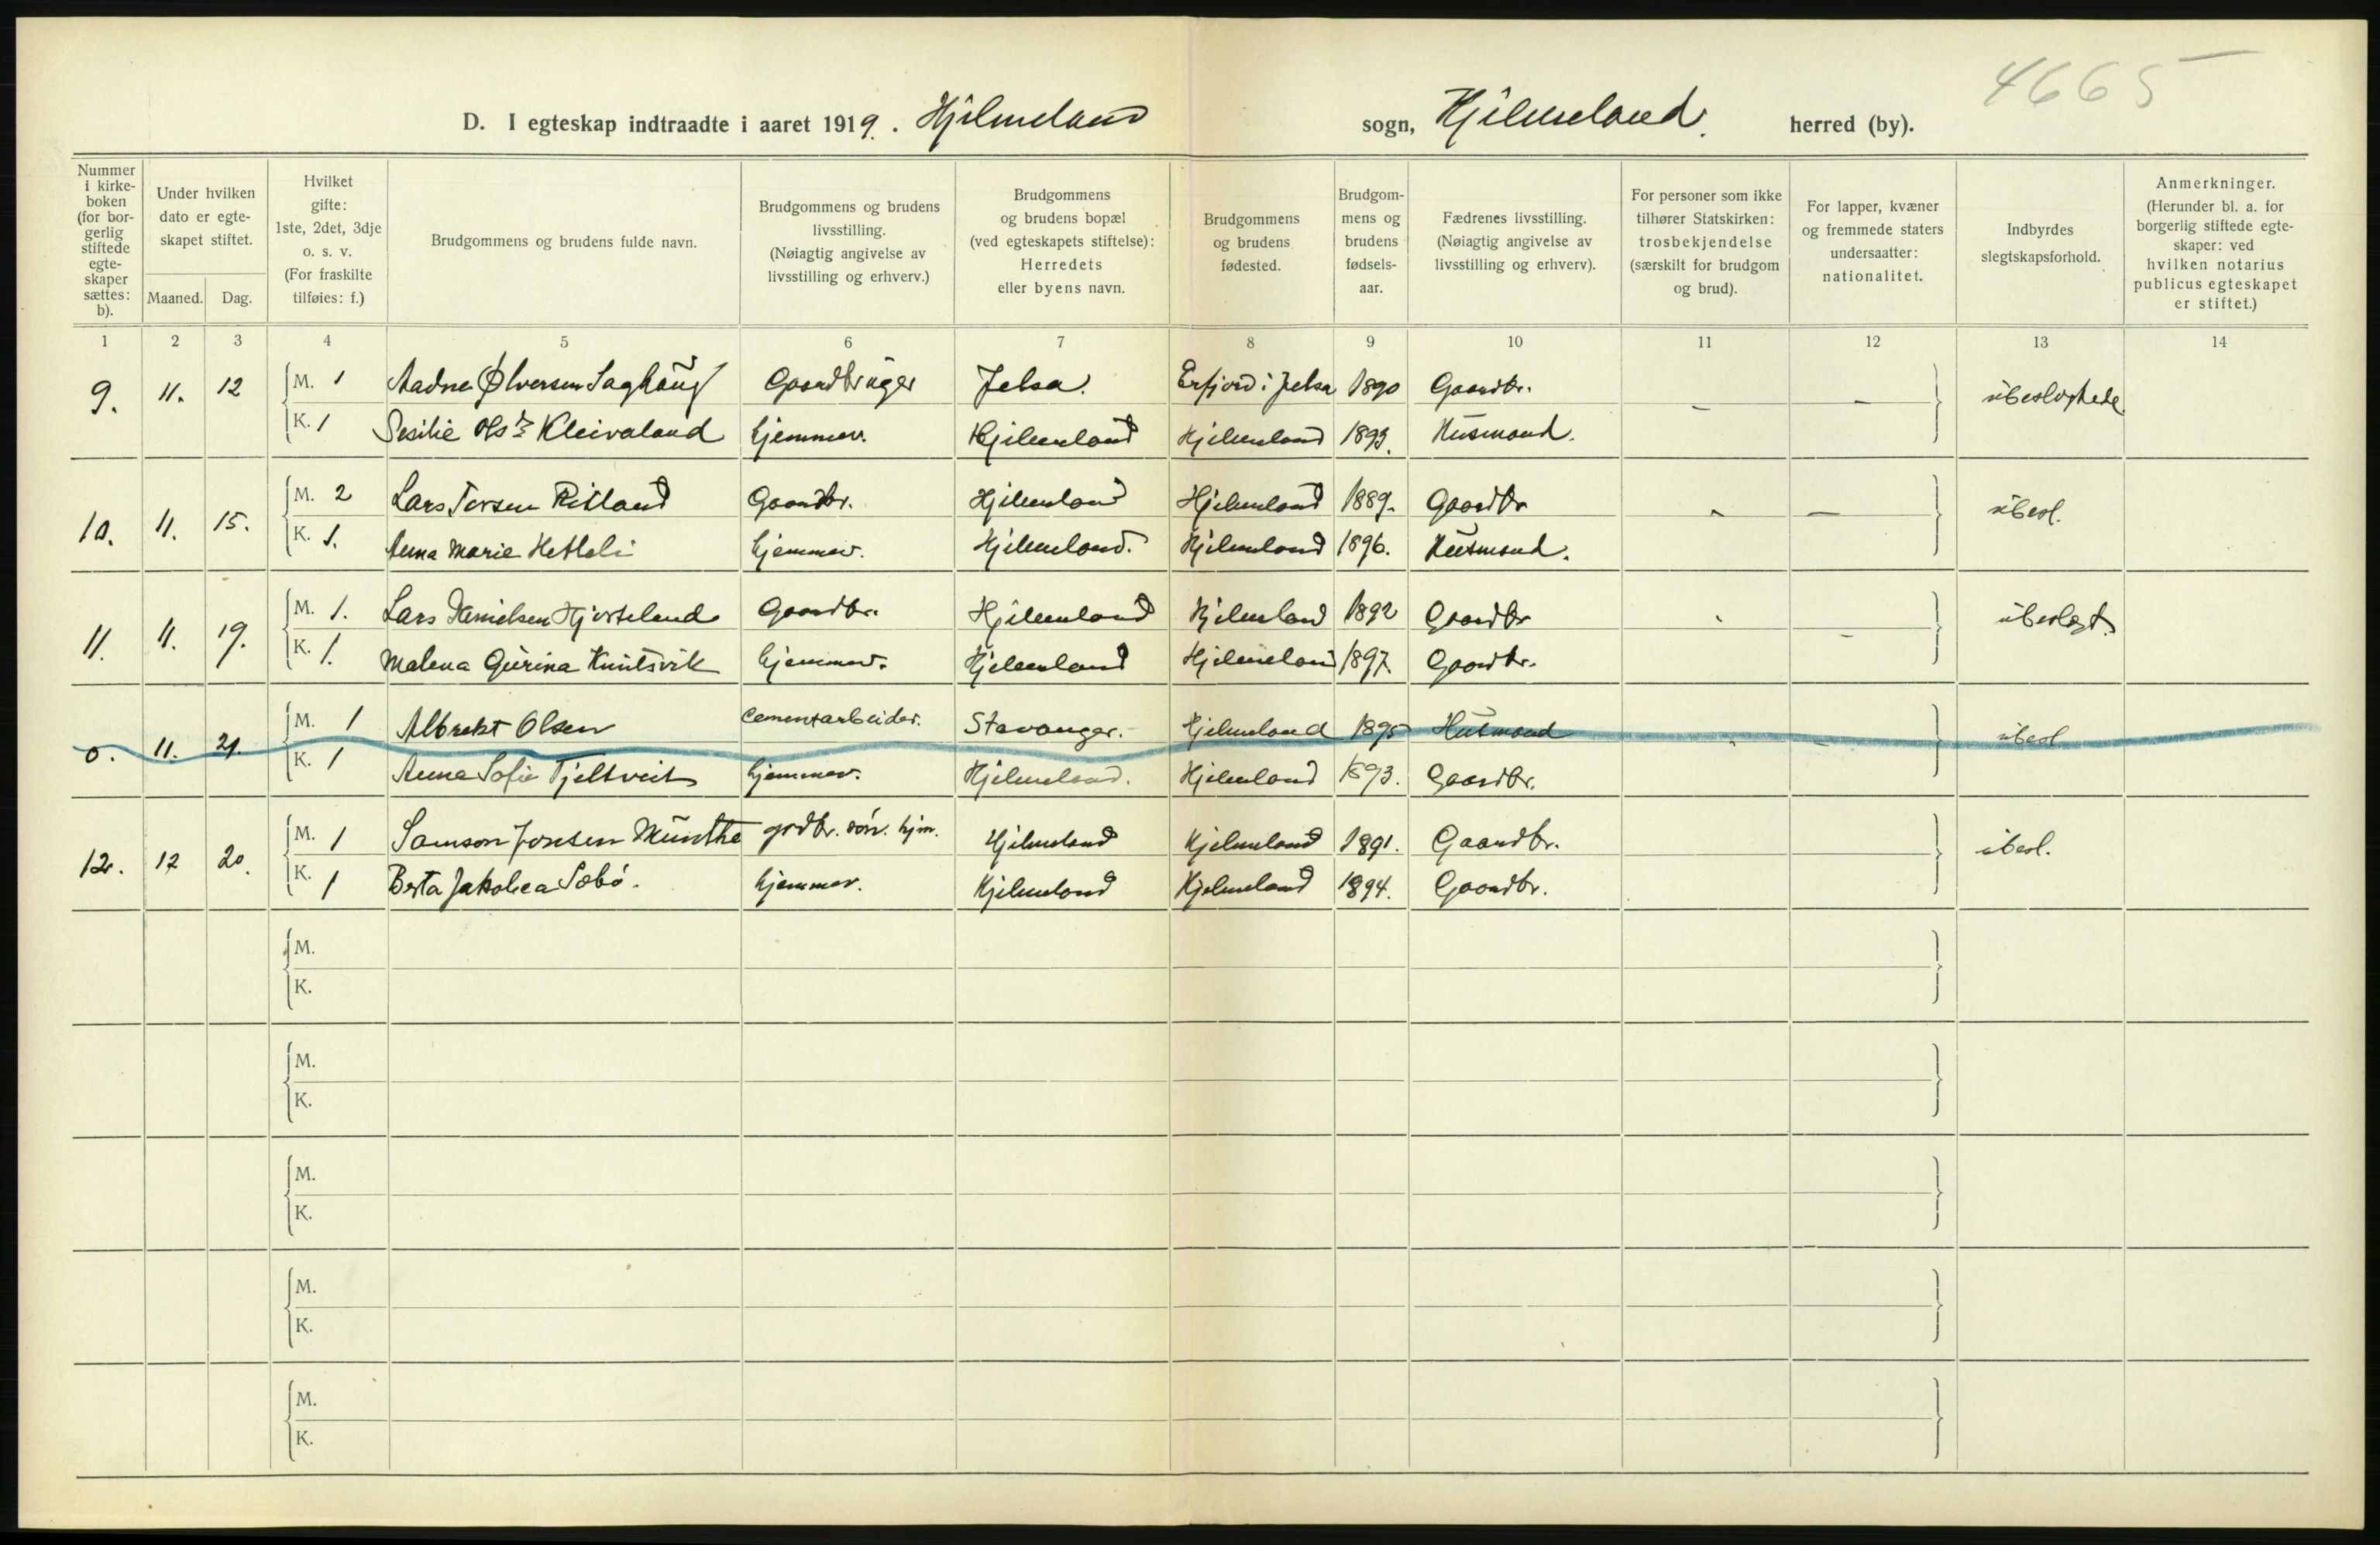 4665
D. I egteskap indtraadte i aaret 1919. Hjelmeland sogn, Hjelmeland herred (by).
Nummer i kirke- boken (for bor- gerlig stiftede egte- skaper sættes: b).
Under hvilken dato er egte- skapet stiftet.
Maaned. Dag.
Hvilket gifte: 1ste, 2det, 3dje o. s. v. (For fraskilte tilføies: f.)
Brudgommens og brudens fulde navn.
Brudgommens og brudens livsstilling. (Nøiagtig angivelse av livsstilling og erhverv.)
Brudgommens og brudens bopæl (ved egteskapets stiftelse): Herredets eller byens navn.
Brudgommens og brudens fødested.
Brudgom- mens og brudens fødsels- aar.
Fædrenes livsstilling. (Nøiagtig angivelse av livsstilling og erhverv).
For personer som ikke tilhører Statskirken: trosbekjendelse (særskilt for brudgom og brud).
For lapper, kvæner og fremmede staters undersaatter: nationalitet.
Indbyrdes slegtskapsforhold.
Anmerkninger. (Herunder bl. a. for borgerlig stiftede egte- skaper: ved hvilken notarius publicus egteskapet er stiftet.)
1 2 3 4 5 6 7 8 9 10 11 12 13 14
9. 11. 12 M. 1 Aadne Ølversen Saghaug Gaardbruger Jelsa. Erfjord i Jelsa 1890 Gaardbr. — — ubeslegtede
K. 1 Sesilie Olsdr Kleivaland hjemmev. Hjelmeland Hjelmeland 1893. Husmand.
10. 11. 15. M. 2 Lars Torsen Ritland Gaardbr. Hjelmeland Hjelmeland 1889. Gaardbr - — ubesl.
K. 1. Anna Marie Hetleli hjemmev. Hjelmeland. Hjelmeland 1896. Husmand.
11. 11. 19. M. 1. Lars Danielsen Hjorteland Gaardbr. Hjelmeland Hjelmeland 1892 Gaardbr - ubeslegt.
K. 1. Malena Gurina Knutsvik hjemmev. Hjelmeland Hjelmeland 1897. Gaardbr.
0. 11. 21. M. 1 Albrekt Olsen Cementarbeider. Stavanger. Hjelmeland 1895 Husmand - - ubesl
K. 1 Anna Sofie Tjeltveit hjemmev. Hjelmeland. Hjelmeland 1893. Gaardbr.
12. 12 20. M. 1 Samson Jonsen Munthe grdbr. søn. hjm. Hjelmeland Hjelmeland 1891. Gaardbr. ubesl.
K. 1 Berta Jakobea Sæbø. hjemmev. Hjelmeland Hjelmeland 1894. Gaardbr.
M.
K.
M.
K.
M.
K.
M.
K.
M.
K.